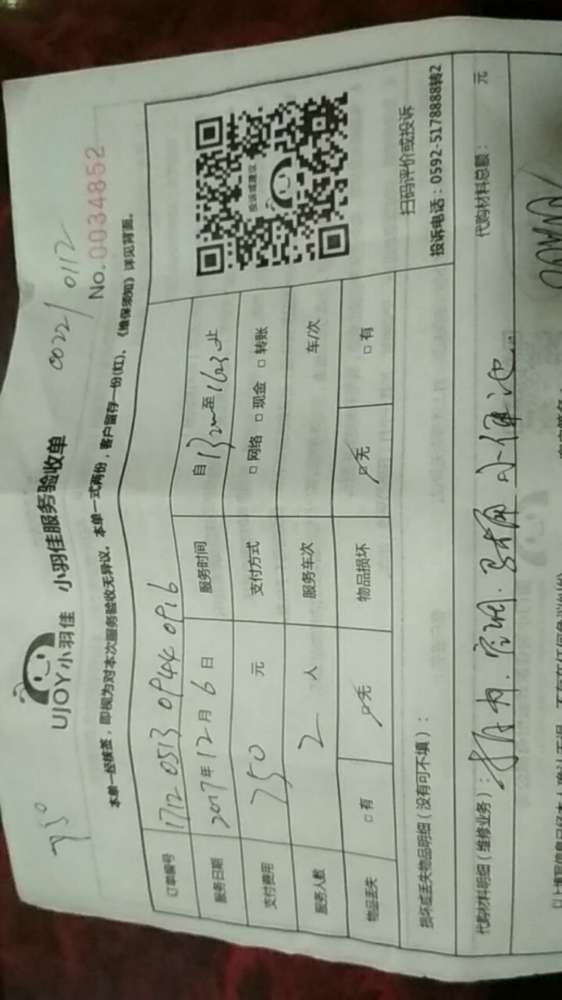 750
0022/0112
UJOY小羽佳 小羽佳服务验收单
No.0034852
本单一经核签,即视为对本次服务验收无异议。本单一式两份,客户留存一份(红)、《维保须知》详见背面。
订单编号 1712 0513 0944 0916
服务日期 2017年12月6日 服务时间 自 至 1623止
支付费用 750 元 支付方式 □网络 □现金 □转账
服务人数 2 人 服务车次 车/次
物品丢失 □有 □无 物品损坏 □无 □有
投诉或建议
扫码评价或投诉
投诉电话:0592-5178888转2
损坏或丢失物品明细(没有可不填):
代购材料明细(维修业务):
代购材料总额: 元